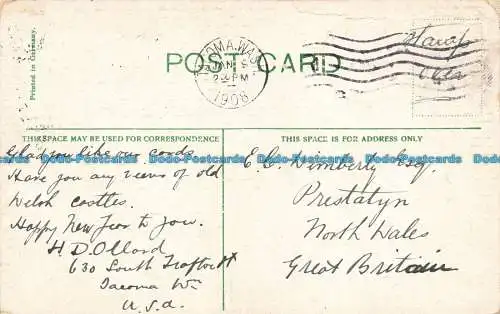 Printed in Germany.
POST CARD
TACOMA, WASH.
JAN 9
2 PM
1908
Stamp
Over
THIS SPACE MAY BE USED FOR CORRESPONDENCE
THIS SPACE IS FOR ADDRESS ONLY
Glad you like our cards
Have you any views of old
Welsh castles.
Happy New Year to you.
H. D. Ollard
630 South Trafton St
Tacoma Wn
U.S.A.
E. C. Wimberly Esq.
Prestatyn
North Wales
Great Britain
Dodo-Postcards Dodo-Postcards Dodo-Postcards Dodo-Postcards Dodo-Postcards Dodo-Postcards